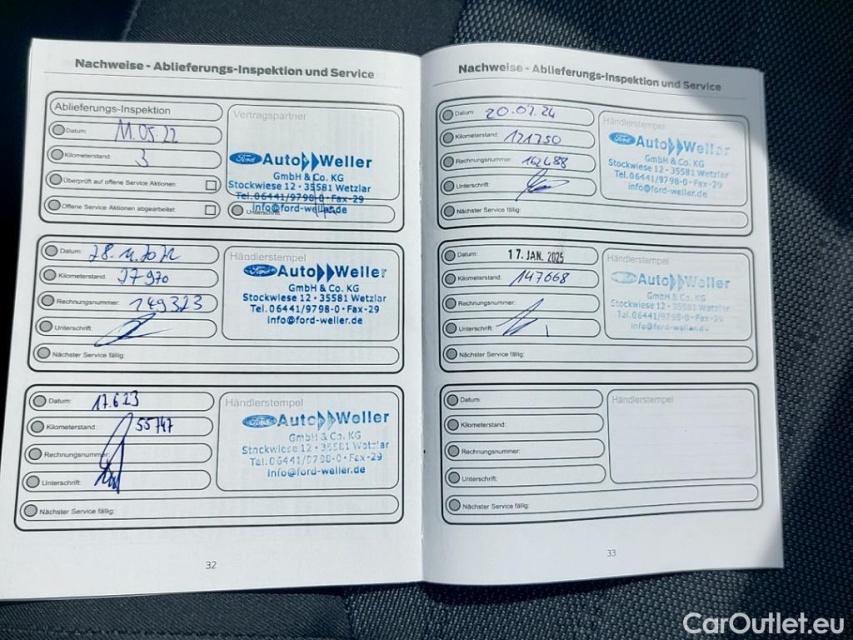 Nachweise - Ablieferungs-Inspektion und Service
Ablieferungs-Inspektion
Datum: 11.05.22
Kilometerstand: 3
Überprüft auf offene Service Aktionen:
Offene Service Aktionen abgearbeitet:
Vertragspartner
Ford Auto Weller
GmbH & Co. KG
Stockwiese 12 · 35581 Wetzlar
Tel. 06441/9798-0 · Fax-29
info@ford-weller.de
Datum: 28.11.2022
Kilometerstand: 27970
Rechnungsnummer: 149323
Unterschrift:
Nächster Service fällig:
Händlerstempel
Ford Auto Weller
GmbH & Co. KG
Stockwiese 12 · 35581 Wetzlar
Tel. 06441/9798-0 · Fax-29
info@ford-weller.de
Datum: 17.6.23
Kilometerstand: 55747
Rechnungsnummer:
Unterschrift:
Nächster Service fällig:
Händlerstempel
Ford Auto Weller
GmbH & Co. KG
Stockwiese 12 · 35581 Wetzlar
Tel. 06441/9798-0 · Fax-29
info@ford-weller.de
32
Nachweise - Ablieferungs-Inspektion und Service
Datum:
Kilometerstand: 121750
Rechnungsnummer:
Unterschrift:
Nächster Service fällig:
Händlerstempel
Ford Auto Weller
GmbH & Co. KG
Stockwiese 12 · 35581 Wetzlar
Tel. 06441/9798-0 · Fax-29
info@ford-weller.de
Datum: 17. JAN. 2025
Kilometerstand: 147668
Rechnungsnummer:
Unterschrift:
Nächster Service fällig:
Händlerstempel
Ford Auto Weller
GmbH & Co. KG
Stockwiese 12 · 35581 Wetzlar
Tel. 06441/9798-0 · Fax-29
info@ford-weller.de
Datum:
Kilometerstand:
Rechnungsnummer:
Unterschrift:
Nächster Service fällig:
Händlerstempel
33
CarOutlet.eu